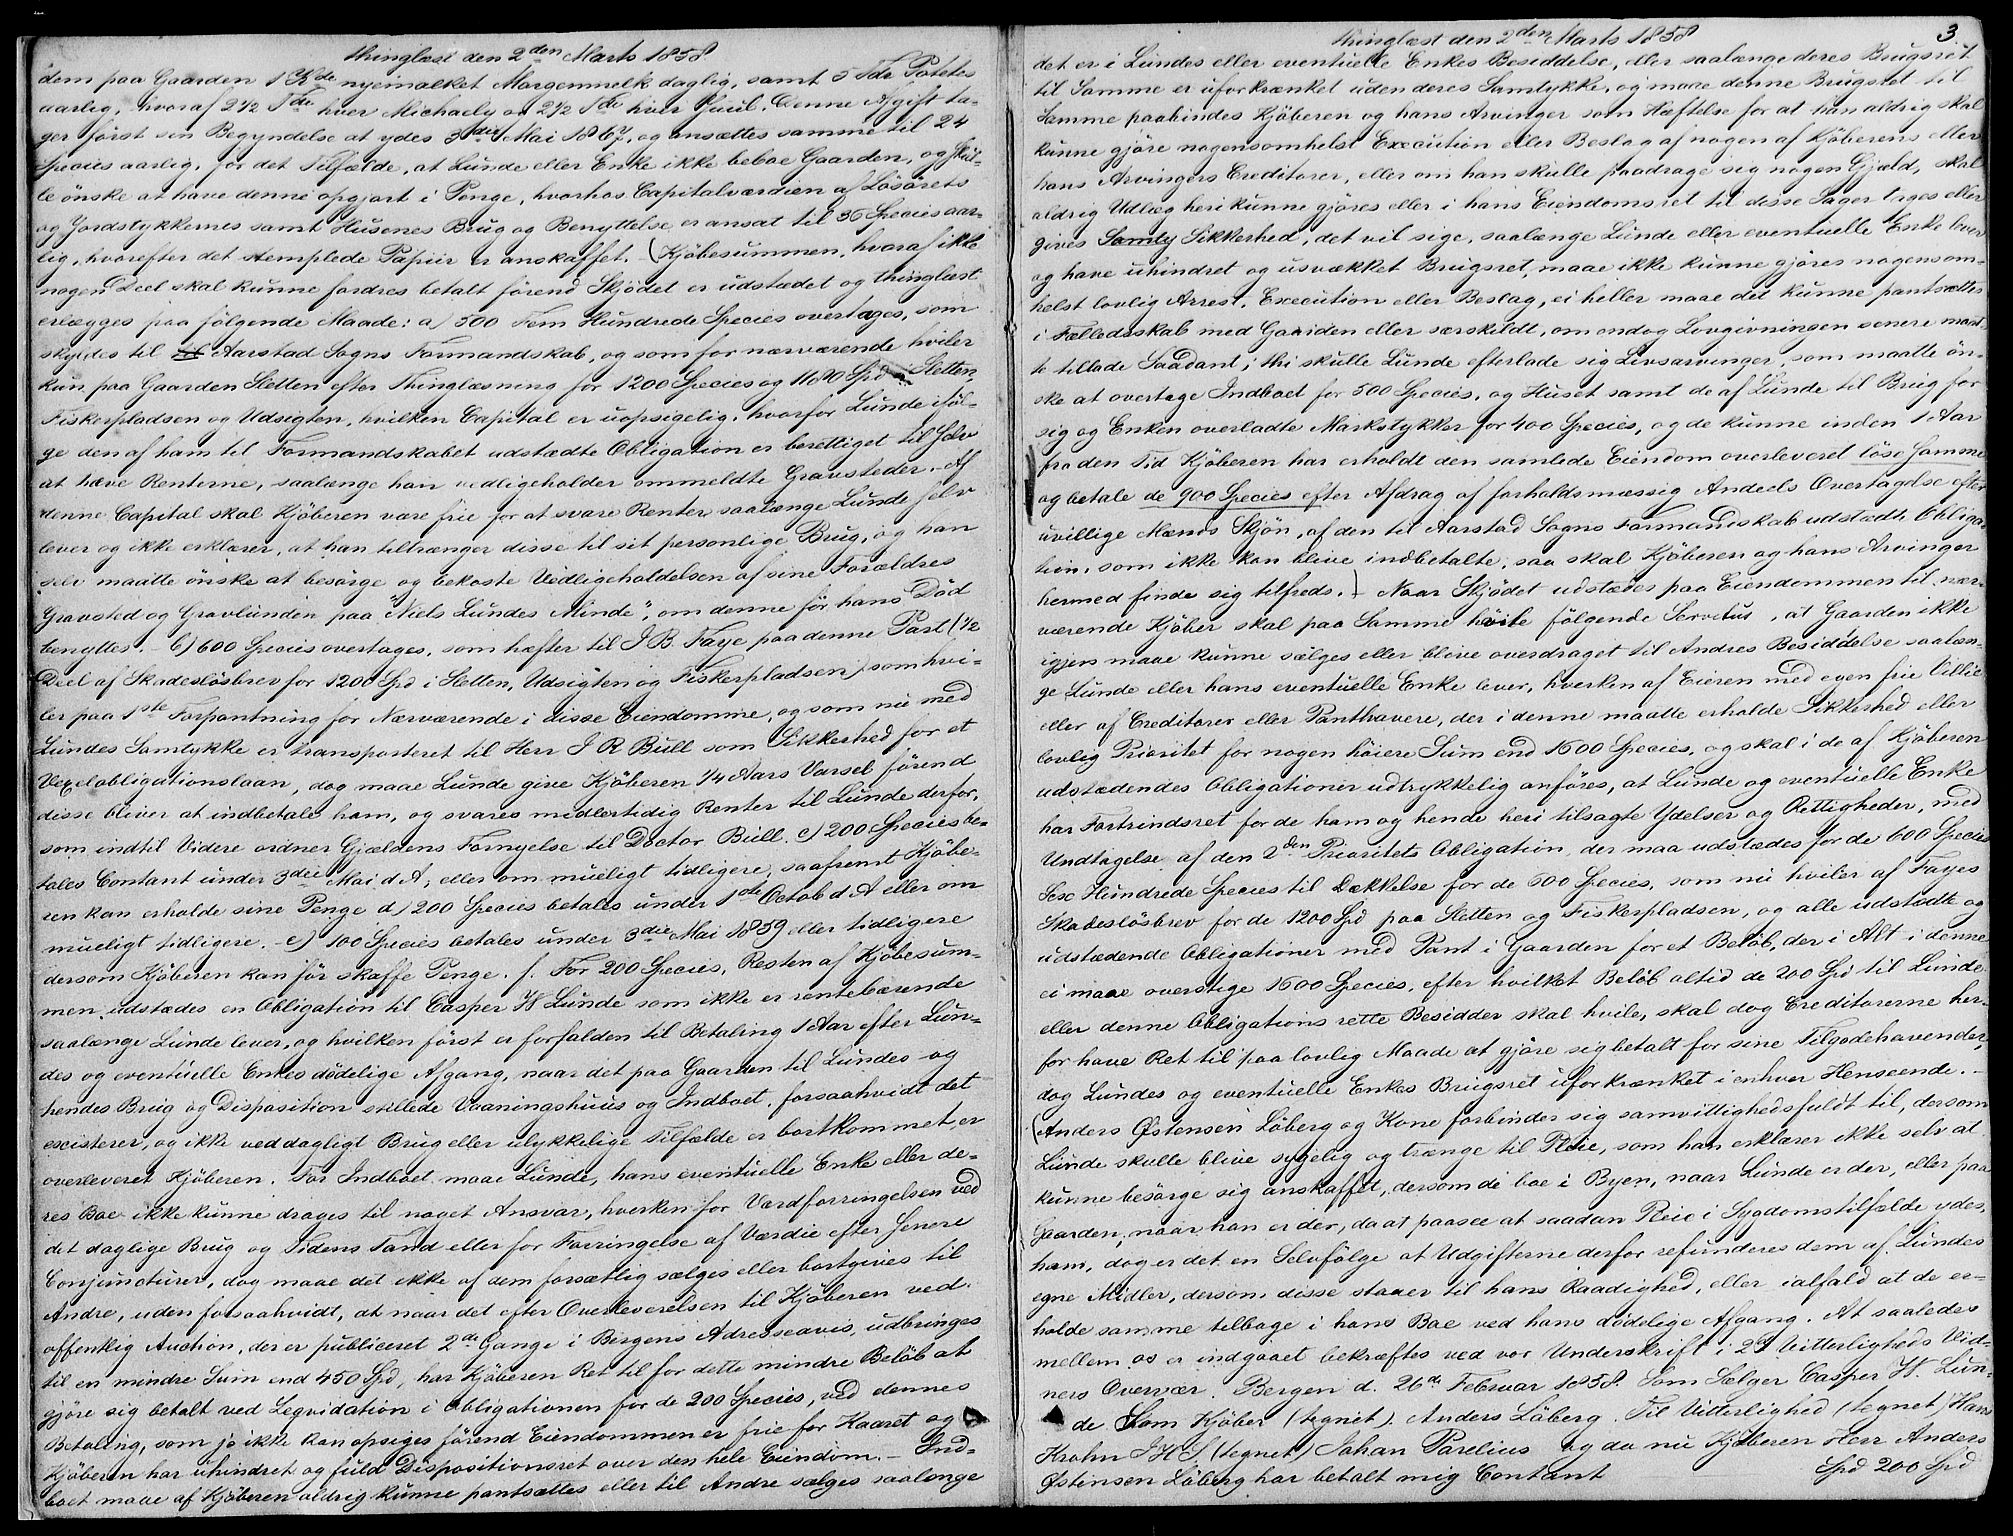 thinglæst den 2den Marts 1858
dem paa Gaarden 1 Kde nyemalket Morgenmelk daglig, samt 5 Tdr Potetes
aarlig, hvoraf 2½ Tde hver Michaely og 2½ Tde hver Juul. Denne Afgift ta-
ger først sin Begyndelse at ydes 3die Mai 1867, og ansættes samme til 24
Species aarlig, for det Tilfælde, at Lunde eller Enke ikke beboe Gaarden, og skul-
le ønske at have denne opgjort i Penge, hvorhos Capitalværdien af Løsørets
og Jordstykkernes samt Husenes Brug og Benyttelse er ansat til 36 Species aar-
lig, hvorefter det stemplede Papiir er anskaffet. (Kjøbesummen, hvoraf ikke
nogen Deel skal kunne fordres betalt førend Skjødet er udstædet og thinglæst
erlægges paa følgende Maade: a) 500 Fem Hundrede Species overtages, som
skyldes til Aarstad Sogns Formandskab, og som for nærværende hviler
kun paa Gaarden Sletten efter Thinglæsning for 1200 Species og 1180 Spd Sletten,
Fiskerpladsen og Udsigten, hvilken Capital er uopsigelig, hvorfor Lunde iføl-
ge den af ham til Formandskabet udstædte Obligation er berettiget til selv
at hæve Renterne, saalænge han vedligeholder ommeldte Gravsteder. Af
denne Capital skal Kjøberen være frie for at svare Renter saalænge Lunde selv
lever og ikke erklærer, at han tiltrænger disse til sit personlige Brug, og han
selv maatte ønske at besørge og bekoste Vedligeholdelsen af sine Forældres
Gravsted og Gravlunden paa "Niels Lundes Minde", om denne før hans Død
benyttes. - b) 600 Species overtages, som hæfter til J B. Faye paa denne Part (½
Deel af Skadesløsbrev for 1200 Spd i Sletten, Udsigten og Fiskerpladsen) som hvi-
ler paa 1ste Forpantning for Nærværende i disse Eiendomme, og som nu med
Lundes Samtykke er transporteret til Herr J R Bull som Sikkerhed for et
Vexelobligationslaan, dog maae Lunde give Kjøberen ¼ Aars Varsel førend
disse bliver at indbetale ham, og svares midlertidig Renter til Lunde derfor,
som indtil Videre ordner Gjældens Fornyelse til Doctor Bull. c) 200 Species be-
tales Contant under 3die Mai d A, eller om mueligt tidligere, saafremt Kjøbe-
ren kan erholde sine Penge d) 200 Species betales under 1ste Octob d A eller om
mueligt tidligere. - e) 100 Species betales under 3die Mai 1859 eller tidligere
dersom Kjøberen kan før skaffe Penge. f. For 200 Species, Resten af Kjøbesum-
men udstædes en Obligation til Casper W Lunde som ikke er rentebærende
saalænge Lunde lever, og hvilken først er forfalden til Betaling 1 Aar efter Lun-
des og eventuelle Enkes dødelige Afgang, naar det paa Gaarden til Lundes og
hendes Brug og Disposition stillede Vaaningshuus og Indboet, forsaahvidt det
existerer, og ikke ved dagligt Brug eller ulykkelige Tilfælde er bortkommet, er
overleveret Kjøberen. For Indboet maae Lunde, hans eventuelle Enke eller de-
res Boe ikke kunne drages til noget Ansvar, hverken for Værdforringelsen ved
det daglige Brug og Tidens Tand eller for Forringelse af Værdie efter senere
Conjuncturer, dog maae det ikke af dem forsætlig sælges eller bortgives til
Andre, uden forsaahvidt, at naar det efter Overleverelsen til Kjøberen ved
offentlig Auction, der er publiceret 2de Gange i Bergens Adresseavis, udbringes
til en mindre Sum end 450 Spd, har Kjøberen Ret til for dette mindre Beløb at
gjøre sig betalt ved Leqvidation i Obligationen for de 200 Species, ved dennes
Betaling, som jo ikke kan opsiges førend Eiendommen er frie for Kaaret og
Kjøberen har uhindret og fuld Dispositionsret over den hele Eiendom. - Ind-
boet maae af Kjøberen aldrig kunne pantsættes eller til Andre sælges saalænge
thinglæst den 2den Marts 1858
3
det er i Lundes eller eventuelle Enkes Besiddelse, eller saalænge deres Brugsret
til Samme er uforkrænket uden deres Samtykke, og maae denne Brugsret til
Samme paabindes Kjøberen og hans Arvinger som Hæftelse for at han aldrig skal
kunne gjøre nogensomhelst Execution eller Beslag af nogen af Kjøberens eller
hans Arvingers Creditorer, eller om han skulle paadrage sig nogen Gjæld, skal
aldrig Udlæg heri kunne gjøres eller i hans Eiendomsret til disse Sager tages eller
gives Sikkerhed, det vil sige, saalænge Lunde eller eventuelle Enke lever
og have uhindret og usvækket Brugsret, maae ikke kunne gjøres nogensom-
helst lovlig Arrest, Execution eller Beslag, ei heller maae det kunne pantsættes
i Fælledsskab med Gaarden eller særskildt, om endog Lovgivningen senere maat-
te tillade Saadant; thi skulle Lunde efterlade sig Livsarvinger, som maatte øn-
ske at overtage Indboet for 500 Species, og Huset samt de af Lunde til Brug for
sig og Enken overladte Markstykker for 400 Species, og de kunne inden 1 Aar
fra den Tid Kjøberen har erholdt den samlede Eiendom overleveret løse Samme
og betale de 900 Species efter Afdrag af forholdsmæssig Andeels Overtagelse efter
uvillige Mænds Skjøn, af den til Aarstad Sogns Formandskab udstædte Obliga-
tion, som ikke kan blive indbetalte, saa skal Kjøberen og hans Arvinger
hermed finde sig tilfreds.) Naar Skjødet udstædes paa Eiendommen til nær-
værende Kjøber skal paa Samme hvile følgende Servitus, at Gaarden ikke
igjen maae kunne sælges eller blive overdraget til Andres Besiddelse saalæn-
ge Lunde eller hans eventuelle Enke lever, hverken af Eieren med egen frie Villie
eller af Creditorer eller Panthavere, der i denne maatte erholde Sikkerhed eller
lovlig Prioritet for nogen høiere Sum end 1600 Species, og skal i de af Kjøberen
udstædendes Obligationer udtrykkelig anføres, at Lunde og eventuelle Enke
har Fortrindsret for de ham og hende heri tilsagte Ydelser og Rettigheder, med
Undtagelse af den 2den Prioritets Obligation, der maa udstædes for de 600 Species
Sex Hundrede Species til Dækkelse for de 600 Species, som nu hviler af Fayes
Skadesløsbrev for de 1200 Spd paa Sletten og Fiskerpladsen, og alle udstædte og
udstædende Obligationer med Pant i Gaarden for et Beløb, der i Alt i denne
ei maae overstige 1600 Species, efter hvilket Beløb altid de 200 Spd til Lunde
eller denne Obligations rette Besidder skal hvile, skal dog Creditorerne her-
for have Ret til paa lovlig Maade at gjøre sig betalt for sine Tilgodehavender,
dog Lundes og eventuelle Enkes Brugsret uforkrænket i enhver Henseende. -
(Anders Østensen Løberg og Kone forbinder sig samvittighedsfuldt til, dersom
Lunde skulle blive sygelig og trænge til Pleie, som han erklærer ikke selv at
kunne besørge sig anskaffet, dersom de boe i Byen, naar Lunde er der, eller paa
Gaarden, naar han er der, da at paasee at saadan Pleie i Sygdomstilfælde ydes
ham, dog er det en Selvfølge at Udgifterne derfor refunderes dem af Lundes
egne Midler, dersom disse staaer til hans Raadighed, eller ialfald at de er-
holde samme tilbage i hans Boe ved hans dødelige Afgang. At saaledes
mellem os er indgaaet bekræftes ved vor Underskrift i 2de Vitterligheds Vid-
ners Overvær. Bergen d. 26de Februar 1858. Som Sælger Casper W. Lun-
de Som Kjøber (tegnet) Anders Løberg. Til Vitterlighed (tegnet) Hans
Krohn (tegnet) Johan Parelius og da nu Kjøberen Herr Anders
Østensen Løberg har betalt mig Contant Spd 200 Spd